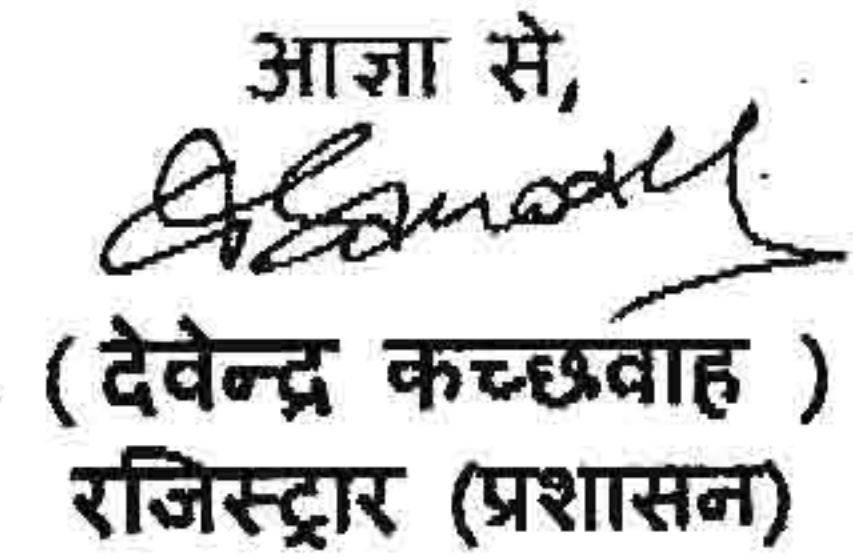 आज्ञा से,
( देवेन्द्र कच्छवाह )
रजिस्ट्रार (प्रशासन)